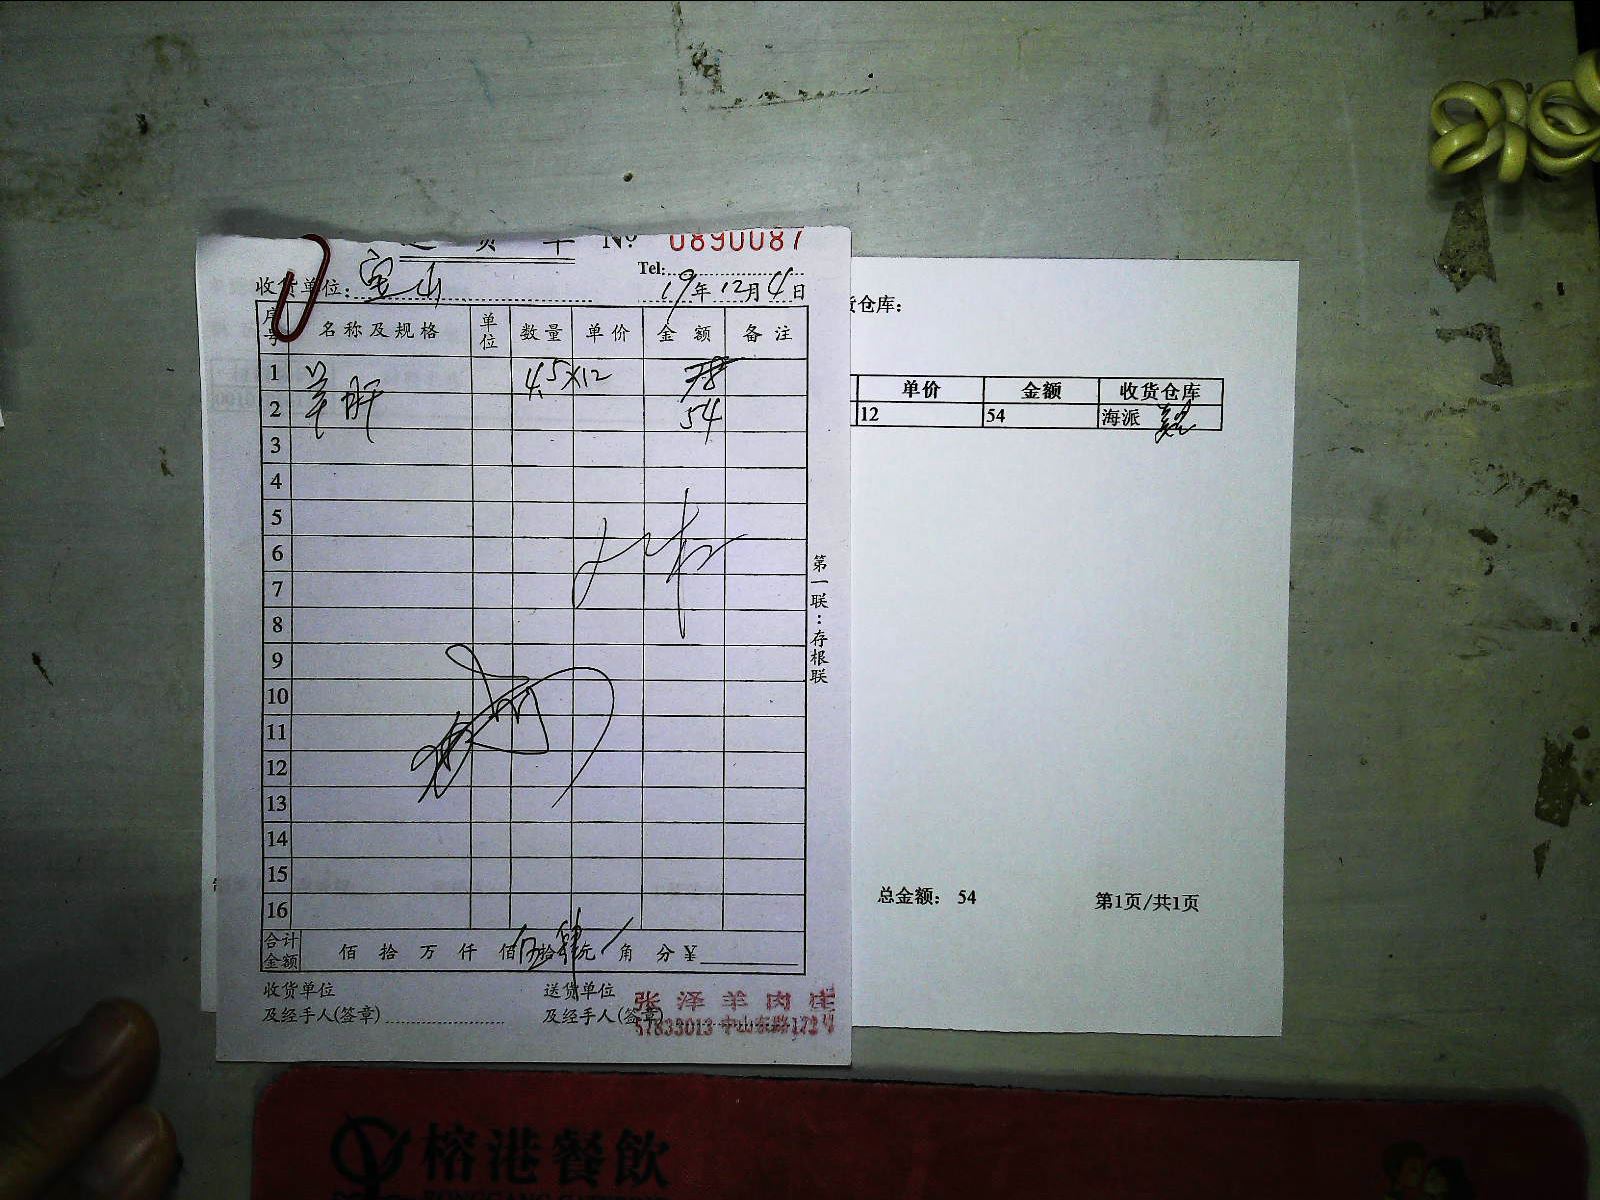 送货单 № 0890087
Tel:
收货单位: 宝山 19年12月4日
序号 名称及规格 单位 数量 单价 金额 备注
1 羊肝 4.5×12
2 54
3
4
5
6
7
8
9
10
11
12
13
14
15
16
合计金额 佰 拾 万 仟 佰 伍拾肆元 角 分 ¥
收货单位 送货单位
及经手人(签章) 及经手人(签章)
张泽羊肉庄
57833013 中山东路172号
第一联:存根联
货仓库:
单价 金额 收货仓库
12 54 海派
总金额: 54 第1页/共1页
榕港餐飲